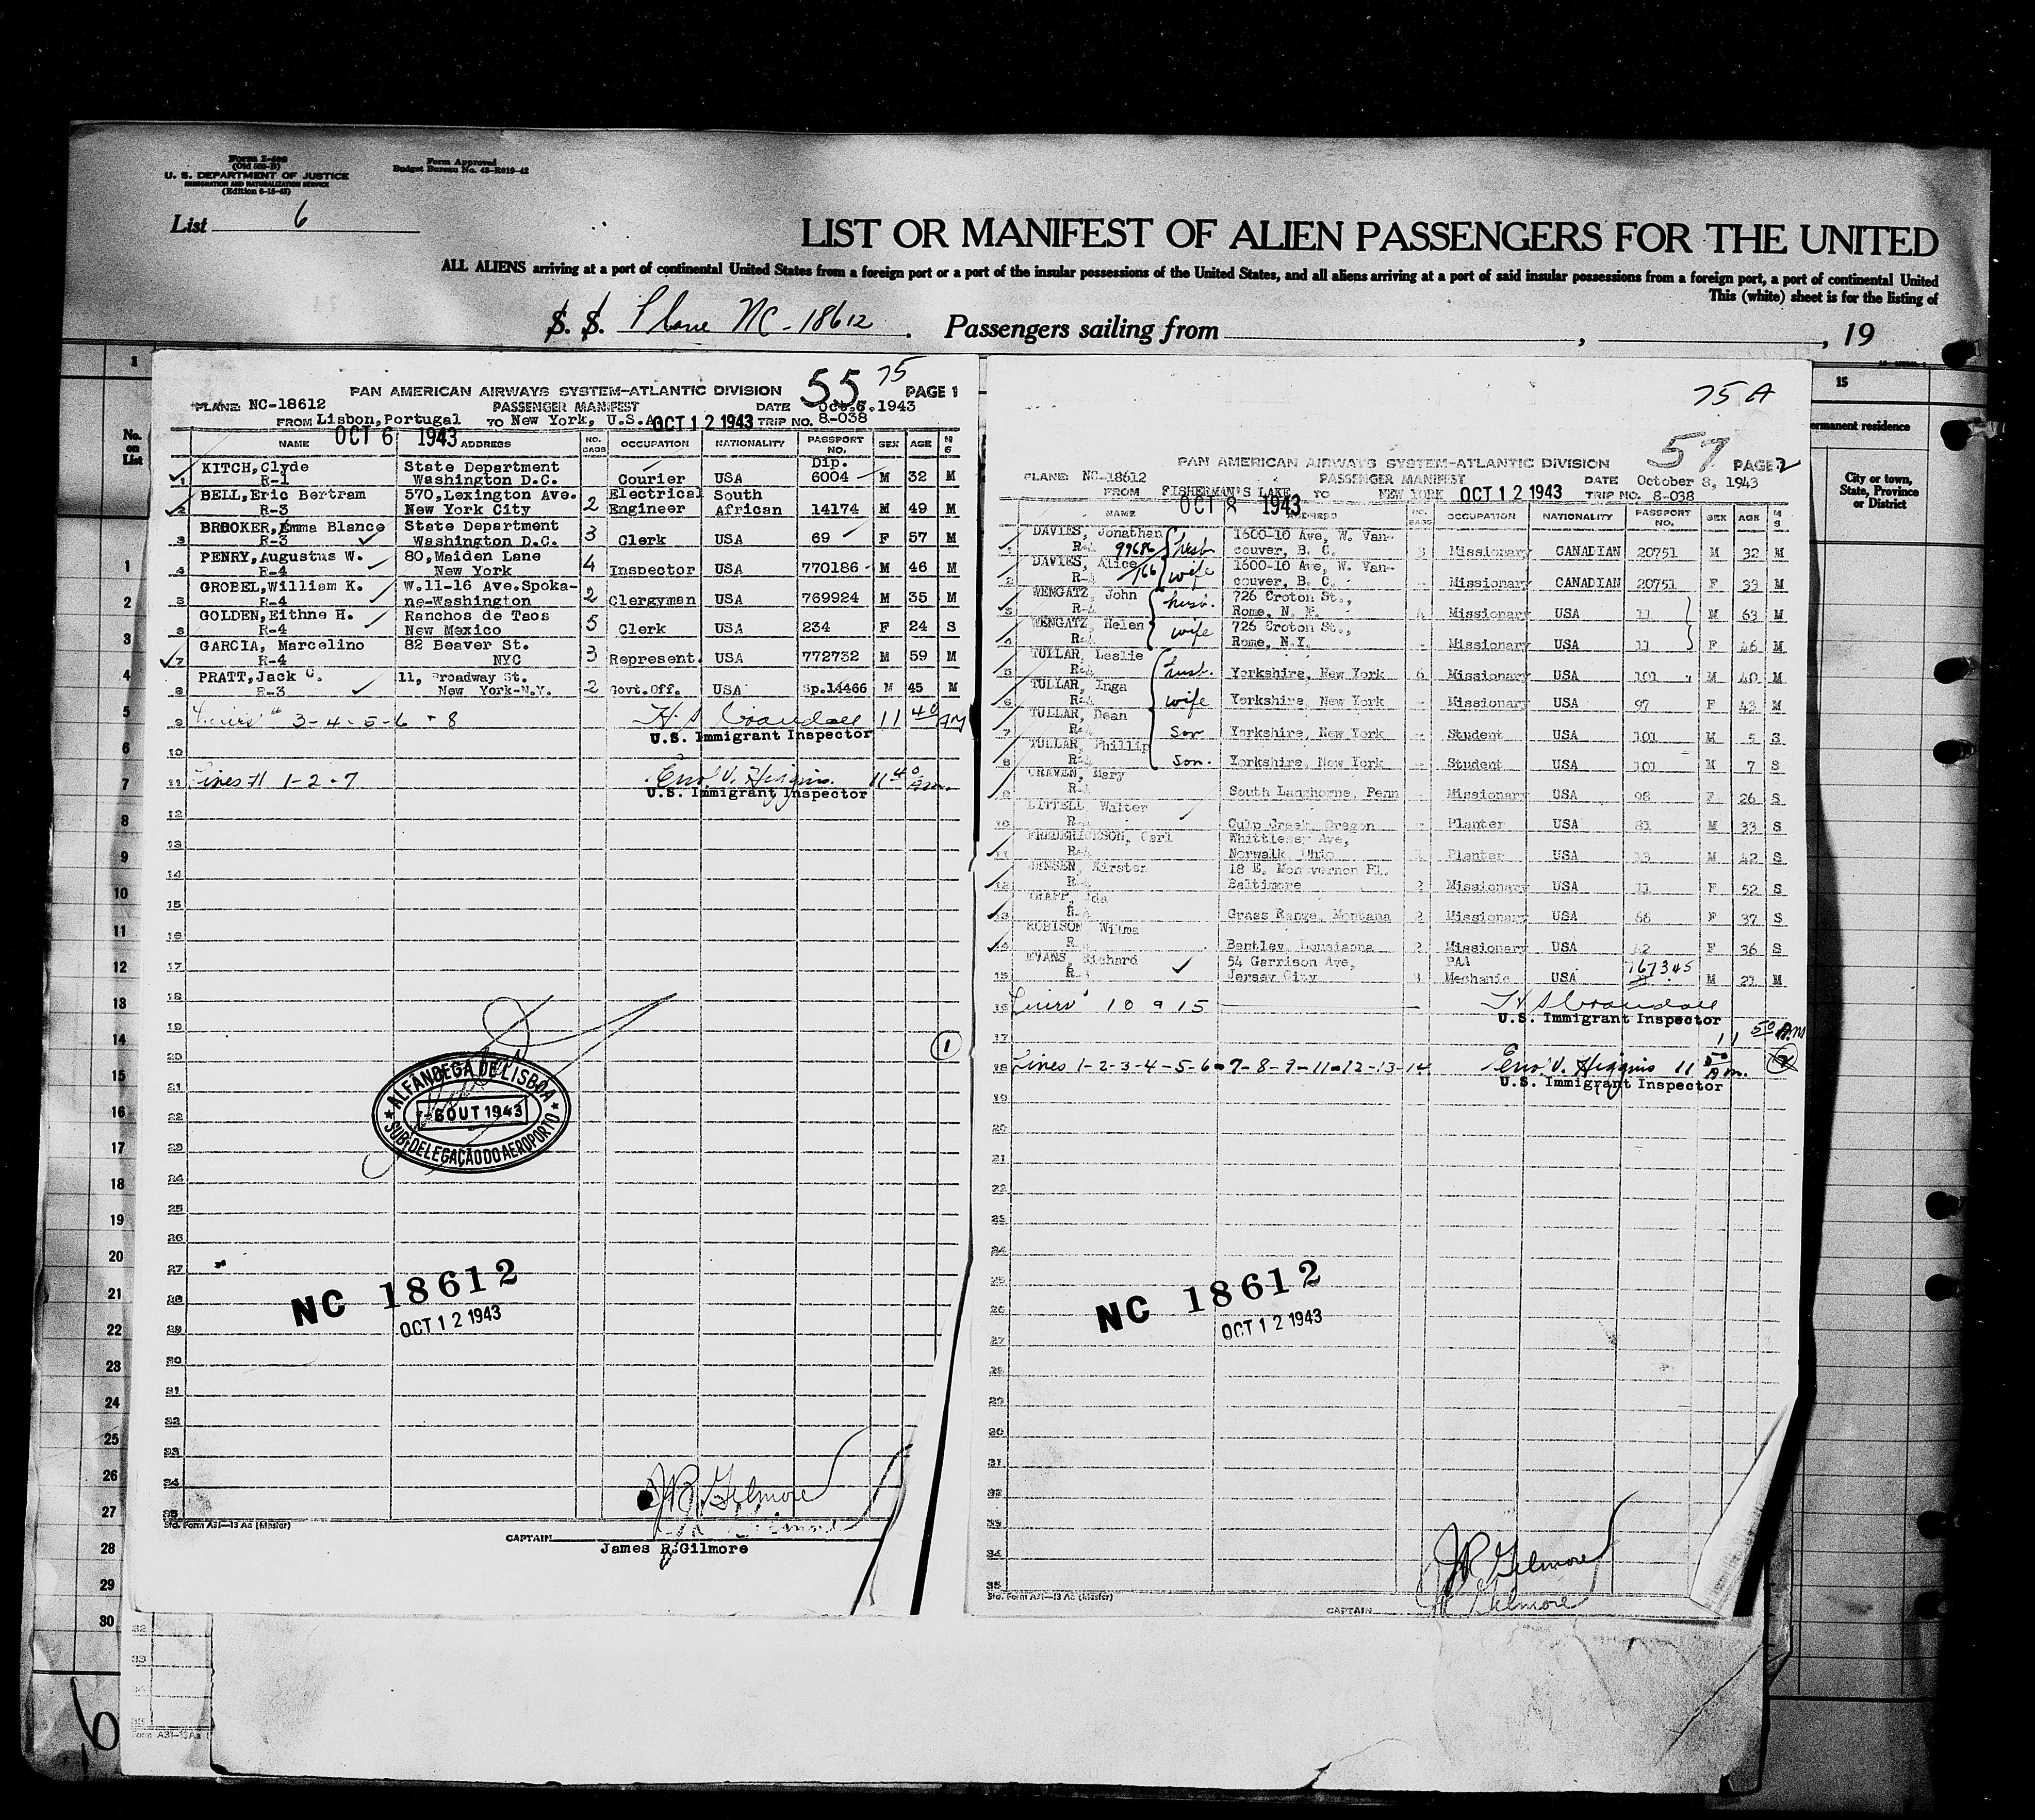 Form I-466
(Old 500-B)
U. S. DEPARTMENT OF JUSTICE
IMMIGRATION AND NATURALIZATION SERVICE
(Edition 6-15-43)
Form Approved
Budget Bureau No. 43-R019-42
List 6
LIST OR MANIFEST OF ALIEN PASSENGERS FOR THE UNITED
ALL ALIENS arriving at a port of continental United States from a foreign port or a port of the insular possessions of the United States, and all aliens arriving at a port of said insular possessions from a foreign port, a port of continental United
This (white) sheet is for the listing of
S. S. Plane NC-18612. Passengers sailing from , , 19
1
No. on List
15
ermanent residence
City or town, State, Province or District
55 75
PAN AMERICAN AIRWAYS SYSTEM-ATLANTIC DIVISION PAGE 1
PLANE: NC-18612 PASSENGER MANIFEST DATE Oct.6.1943
FROM Lisbon,Portugal TO New York, U.S.A. OCT 12 1943 TRIP NO. 8-038
OCT 6 1943
NAME ADDRESS NO. BAGS OCCUPATION NATIONALITY PASSPORT NO. SEX AGE M S
KITCH,Clyde State Department Dip.
1 R-1 Washington D.C. Courier USA 6004 M 32 M
BELL,Eric Bertram 570,Lexington Ave. Electrical South
2 R-3 New York City 2 Engineer African 14174 M 49 M
BROOKER,Emma Blance State Department
3 R-3 Washington D.C. 3 Clerk USA 69 F 57 M
PENRY,Augustus W. 80,Maiden Lane
4 R-4 New York 4 Inspector USA 770186 M 46 M
GROBEL,William K. W.11-16 Ave.Spoka-
5 R-4 ne-Washington 2 Clergyman USA 769924 M 35 M
GOLDEN,Eithne H. Ranchos de Taos
6 R-4 New Mexico 5 Clerk USA 234 F 24 S
GARCIA, Marcelino 82 Beaver St.
7 R-4 NYC 3 Represent. USA 772732 M 59 M
PRATT,Jack C. 11, Broadway St.
8 R-3 New York-N.Y. 2 Govt.Off. USA Sp.14466 M 45 M
9 Lines 3-4-5-6 + 8 H. S. Crandall 11 40 AM
U.S. Immigrant Inspector
10
11 Lines # 1-2-7 Eno V. Higgins 11 40 am.
U.S. Immigrant Inspector
12
13
14
15
16
17
18
19
20
21
22
23
24
25
26
27
28
29
30
31
32
33
34
35
1
ALFÂNDEGA DE LISBOA
-6 OUT 1943
SUB-DELEGAÇÃO DO AEROPORTO
NC 18612
OCT 12 1943
J R Gilmore
Std. Form A31-13 Aa (Master)
CAPTAIN
James R.Gilmore
75 A
57
PAN AMERICAN AIRWAYS SYSTEM-ATLANTIC DIVISION PAGE 2
PLANE: NC-18612 PASSENGER MANIFEST DATE October 8, 1943
FROM FISHERMAN'S LAKE TO NEW YORK OCT 12 1943 TRIP NO. 8-038
OCT 8 1943
NAME ADDRESS NO. BAGS OCCUPATION NATIONALITY PASSPORT NO. SEX AGE M S
DAVIES, Jonathan 1600-10 Ave, W. Van-
1 R-4 husb couver, B. C. 3 Missionary CANADIAN 20751 M 32 M
DAVIES, Alice 1600-10 Ave, W. Van-
2 R-4 wife couver, B. C. - Missionary CANADIAN 20751 F 33 M
WENGATZ, John husb. 726 Croton St.,
3 R-4 Rome, N. Y. Missionary USA 11 M 63 M
WENGATZ, Helen 726 Croton St.,
4 R-4 wife Rome, N.Y. - Missionary USA 11 F 46 M
TULLAR, Leslie
5 R-4 husb. Yorkshire, New York 6 Missionary USA 101 M 40 M
TULLAR, Inga
6 R-4 wife Yorkshire, New York - Missionary USA 97 F 43 M
TULLAR, Dean
7 R-4 Son Yorkshire, New York - Student USA 101 M 5 S
TULLAR, Phillip
8 R-4 Son. Yorkshire, New York - Student USA 101 M 7 S
CRAVEN, Mary
9 R-4 South Langhorne, Penn - Missionary USA 98 F 26 S
LITTELL Walter
10 R-4 Culp Creek, Oregon - Planter USA 81 M 33 S
FREDERICKSON, Carl Whittlesey Ave,
11 R-4 Norwalk, Ohio Planter USA 13 M 42 S
JENSEN, Kirsten 18 E. Mon vernon Pl.
12 R-4 Baltimore 2 Missionary USA 11 F 52 S
TRAPP, Ida
13 R-4 Grass Range, Montana 2 Missionary USA 66 F 37 S
ROBISON Wilma
14 R Bentley, Lousianna 2 Missionary USA 42 F 36 S
EVANS, Richard 54 Garrison Ave, PAA 167345
15 Jersey City 3 Mechanic USA M 27 M
16 Lines 10 9 15 H S Crandall
U.S. Immigrant Inspector
17 11 50 A.M
18 Lines 1-2-3-4-5-6-7-8-9-11-12-13-14 Eno V. Higgins 11 50 Am.
U.S. Immigrant Inspector
19
20
21
22
23
24
25
26
27
28
29
30
31
32
33
34
35
NC 18612
OCT 12 1943
J R Gilmore
J R Gilmore
Std. Form A31-13 Aa (Master)
CAPTAIN
1
2
3
4
5
6
7
8
9
10
11
12
13
14
15
16
17
18
19
20
21
22
23
24
25
26
27
28
29
30
32
33
Form A31-13Aa
6